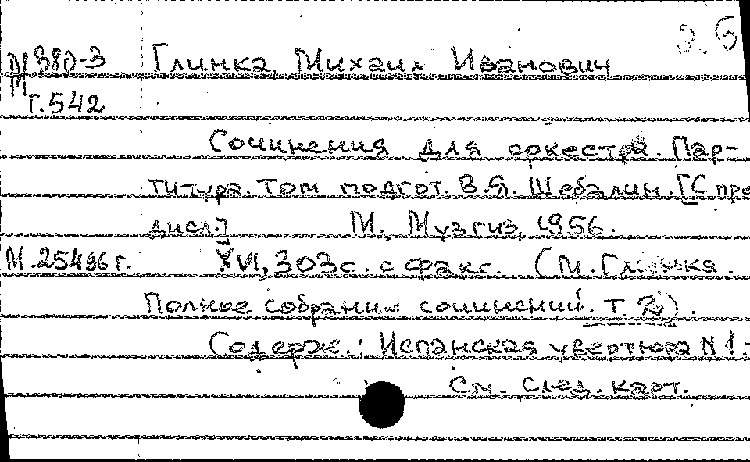 М 380-3 Глинка, Михаил Иванович
Г.542
Сочинения для оркестра. Пар-
титура. Том подгот. В.Я. Шебалин. [С пре
дисл.] М., Музгиз, 1956.
М.25496г. XVI, 303с. с факс. (М. Глинка.
Полное собрание сочинений. Т.2).
Содерж.: Испанская увертюра N 1.-
См. след. карт.